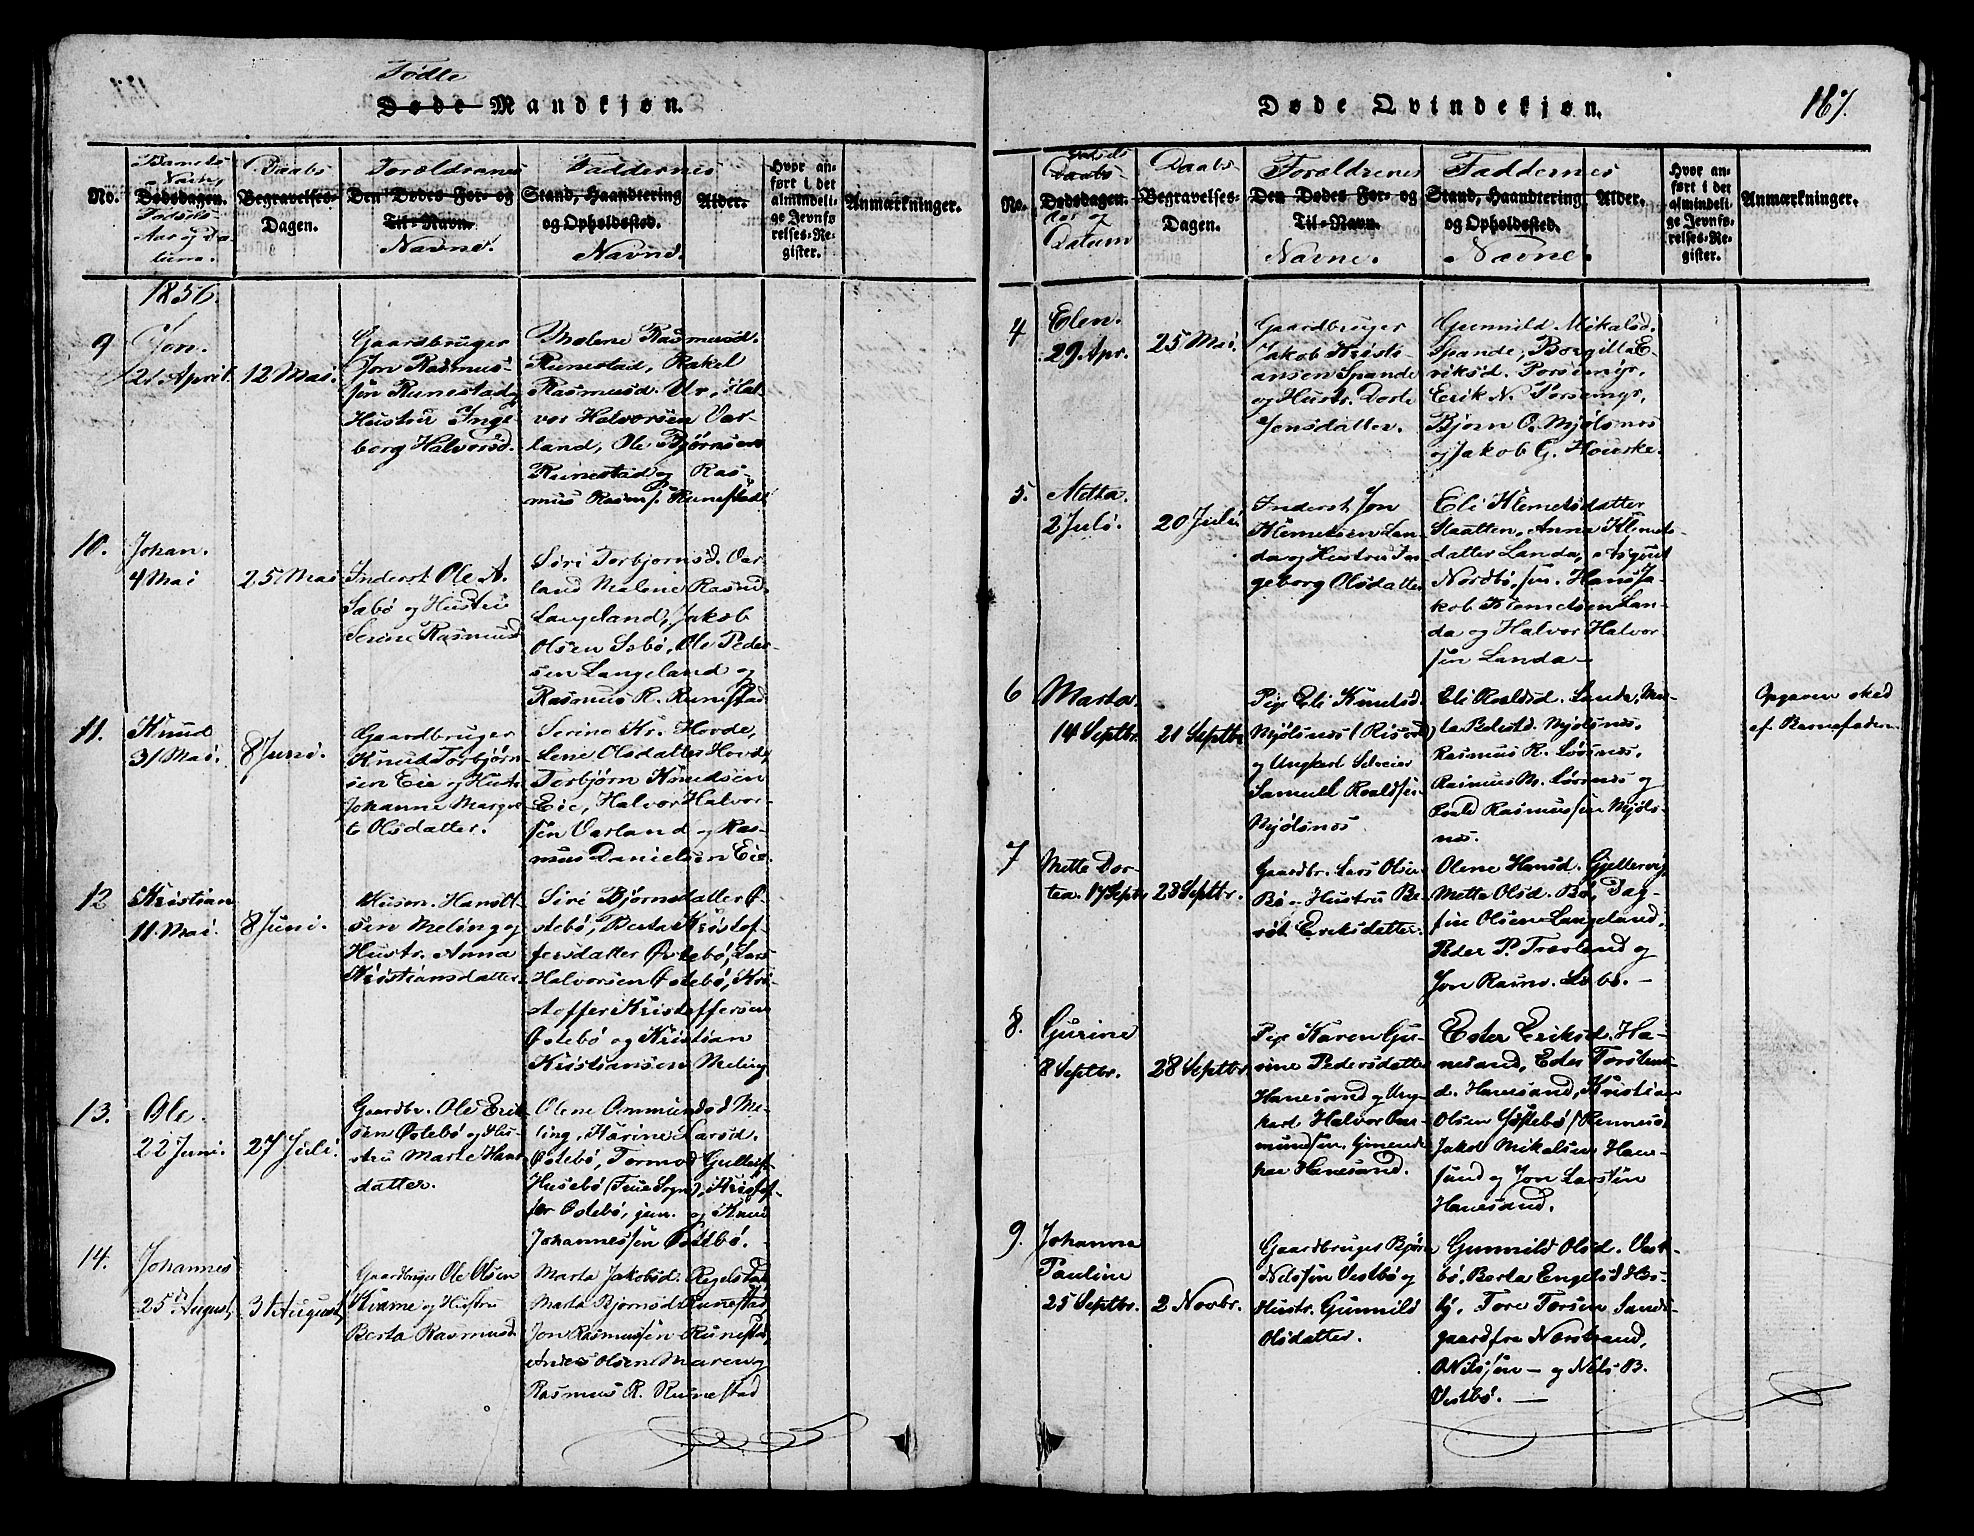 Fødte
Døde Mandkjøn.
No.
Barnets
Navn,
Dødsdagen.
Fødsels
Aar og Da-
tum.
Daabs
Begravelses-
Dagen.
Forældrenes
Den Dødes For- og
Til-Navn.
Navne.
Faddernes
Stand, Haandtering
og Opholdssted.
Navne.
Alder.
Hvor an-
ført i det
almindeli-
ge Jevnfø-
relses-Re-
gister.
Anmærkninger.
1856.
9
Jon.
21 April.
12 Mai.
Gaardbruger
Jon Rasmus-
sen Runestad
Hustru Inge-
borg Halvorsd.
Malene Rasmusd.
Runestad, Rakel
Rasmusd. Ur, Hal-
vor Halvorsen Var-
land, Ole Bjørnsen
Runestad og Ras-
mus Rasm.s. Runestad
10.
Johan.
4 Mai
25 Mai
Inderst Ole A.
Sæbø og Hustru
Serine Rasmusd
Siri Torbjørnsd. Var-
land Malene Rasmd.
Langeland, Jakob
Olsen Sebø, Ole Peder-
sen Langeland og
Rasmus R. Runestad
11.
Knud
31 Mai.
8 Juni.
Gaardbruger
Knud Torbjørn-
sen Eie og Hustr.
Johanne Margre-
te Olsdatter.
Serine Kr. Hovde,
Lene Olsdatter Hovde,
Torbjørn Knudsen
Eie, Halvor Halvor-
sen Varland og Ras-
mus Danielsen Eie.
12
Kristian
11 Mai.
8 Juni.
Husm. Hans Ol-
sen Meling og
Hustr. Anna
Kristiansdatter.
Siri Bjørnsdatter Ø-
stebø, Berta Kristof-
fersdatter Østebø, Lars
Halvorsen Østebø, Kri-
stoffer Kristoffersen
Østebø og Kristian
Kristiansen Meling
13.
Ole.
22 Juni.
27 Juli.
Gaardbr. Ole Erik-
sen Østebø og Hu-
stru Marte Hans-
datter.
Olene Ommundsd Me-
ling, Karine Larsd.
Østebø, Tormod Gulleifs.
Husebø (Tue Sogn), Kristof-
fer Østebø, jun. og Knud
Johannessen Østebø.
14.
Johannes
25 August,
31 August,
Gaardbruger Ole Olsen
Kvame og Hustru
Berta Rasmusd.
Marta Jakobsd. Regelstad
Marta Bjørnsd. Runestad
Jon Rasmussen Runestad,
Anders Olsen Maren og
Rasmus R. Runestad
Døde Qvindekjøn.
167.
No.
Daabs
Dødsdagen.
Datum
Daabs
Begravelses-
Dagen.
Forældrenes
Den Dødes For- og
Til-Navn.
Navne.
Faddernes
Stand, Haandtering
og Opholdssted.
Navne.
Alder.
Hvor an-
ført i det
almindeli-
ge Jevnfø-
relses-Re-
gister.
Anmærkninger.
4
Elen.
29 Apr.
25 Mai.
Gaardbruger
Jakob Kristi-
ansen Spande
og Hustr. Dorte
Jonsdatter.
Gunnild Mikalsd.
Spande, Borgilla E-
riksd. Torsemyr,
Erik N. Torsemyr,
Bjørn O. Mjølsnes
og Jakob G. Houske.
5.
Metha.
2 Juli.
20 Juli
Inderst Jon
Klemetsen Lan-
da og Hustru In-
geborg Olsdatter
Eli Klemetsdatter
Slaatten, Anna Klemets-
datter Landa, Asgaut
Nordbø, sen. Hans Ja-
kob Klemetsen Lan-
da og Halvor Halvor-
sen Landa —
6
Marta.
14 Septbr.
21 Septbr
Pige Eli Knutsd.
Mjølsnes (Risvold)
og Ungkarl Selveier
Samuel Roaldsen
Mjølsnes.
Eli Roaldsd. Landa,
Mjølsnes,
Rasmus R. Løsnes,
Rasmus M. Løsnes og
Roald Rasmussen Mjøls-
nes.
Opgaven sked
af Barnefaderen
7
Mette Dor-
tea. 17 Septr.
28 Septbr.
Gaardbr. Lars Olsen
Bø og Hustru Be-
rit Eriksdatter.
Olene Hansd. Gjellervig
Mette Olsd. Bø, Dag-
fin Olsen Langeland,
Peder P. Træland og
Jon Rasm. Sebø. —
8.
Gurine
8 Septbr.
28 Septbr.
Pige Karen Gu-
rine Pedersdatter
Hanesand og Ung-
karl Halvor Aas-
mundsen
Hanesand.
Ester Eriksd. Ha-
nesand, Ester Torstens-
d. Hanesand, Kristian
Olsen Østebø (Rennesø)
Jakob Mikelsen Hane-
sand og Jon Larsen
Hanesand.
9.
Johanna
Pauline
25 Septbr.
2 Novbr.
Gaardbruger Bjørn
Nilssen Vestbø og
Hustr. Gunnild
Olsdatter.
Gunnild Olsd. Vest-
bø, Berta Engelsd Hus-
tj. Tore Torsen Sands-
gaard fra Nærstrand,
O Nilssen — og Nils B.
Vestbø. —